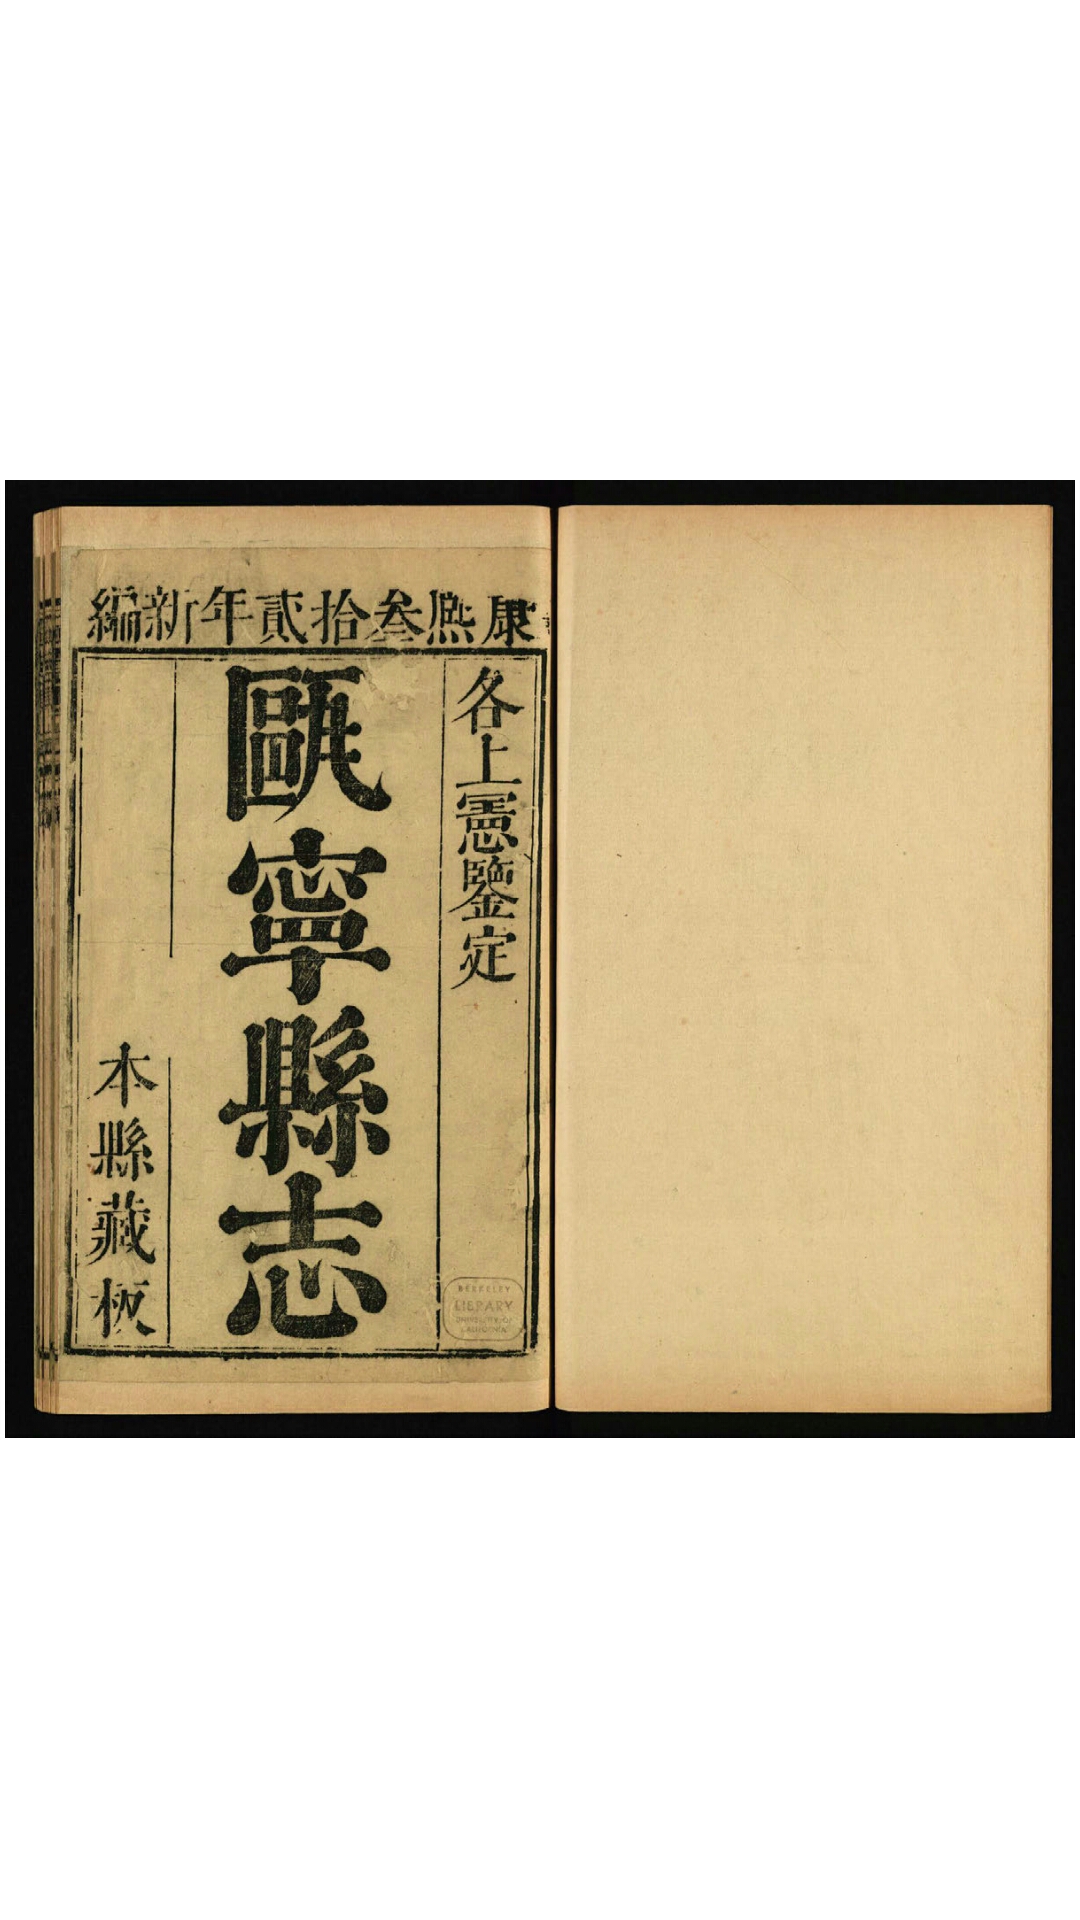 康熙叁拾貳年新編
各上憲鑒定
甌寧縣志
本縣藏板
BERKELEY
LIBRARY
UNIVERSITY OF
CALIFORNIA